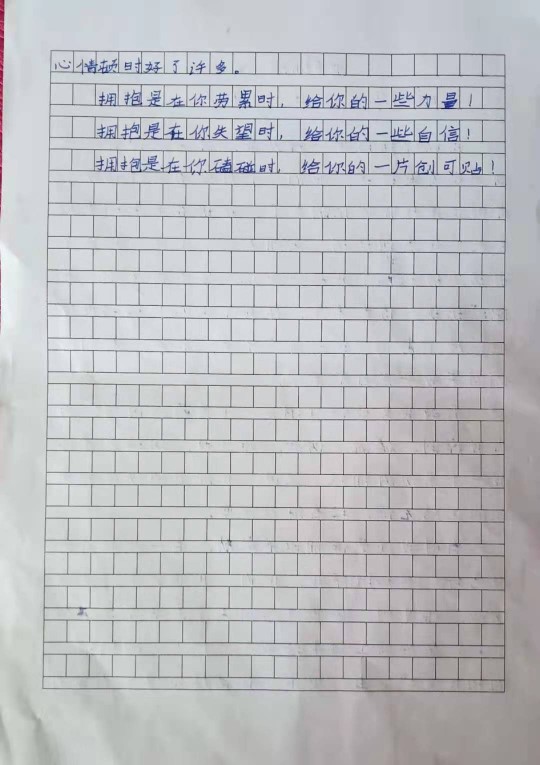 心情顿时好了许多。
拥抱是在你劳累时，给你的一些力量！
拥抱是在你失望时，给你的一些自信！
拥抱是在你磕碰时，给你的一片创可贴！